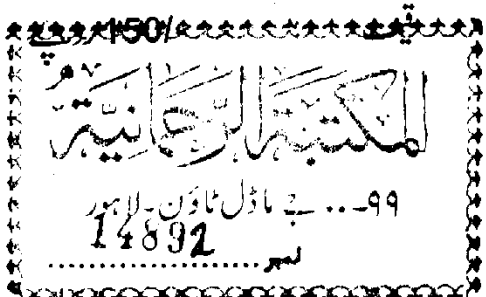 150/
المکتبۃ الرحمانیۃ
۹۹... جے ماڈل ٹاؤن۔ لاہور
14892
نمبر....................